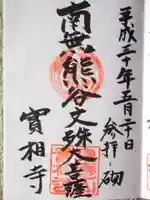 平成三十年五月二十日
参拝砌
南無熊谷文殊大菩薩
實相寺